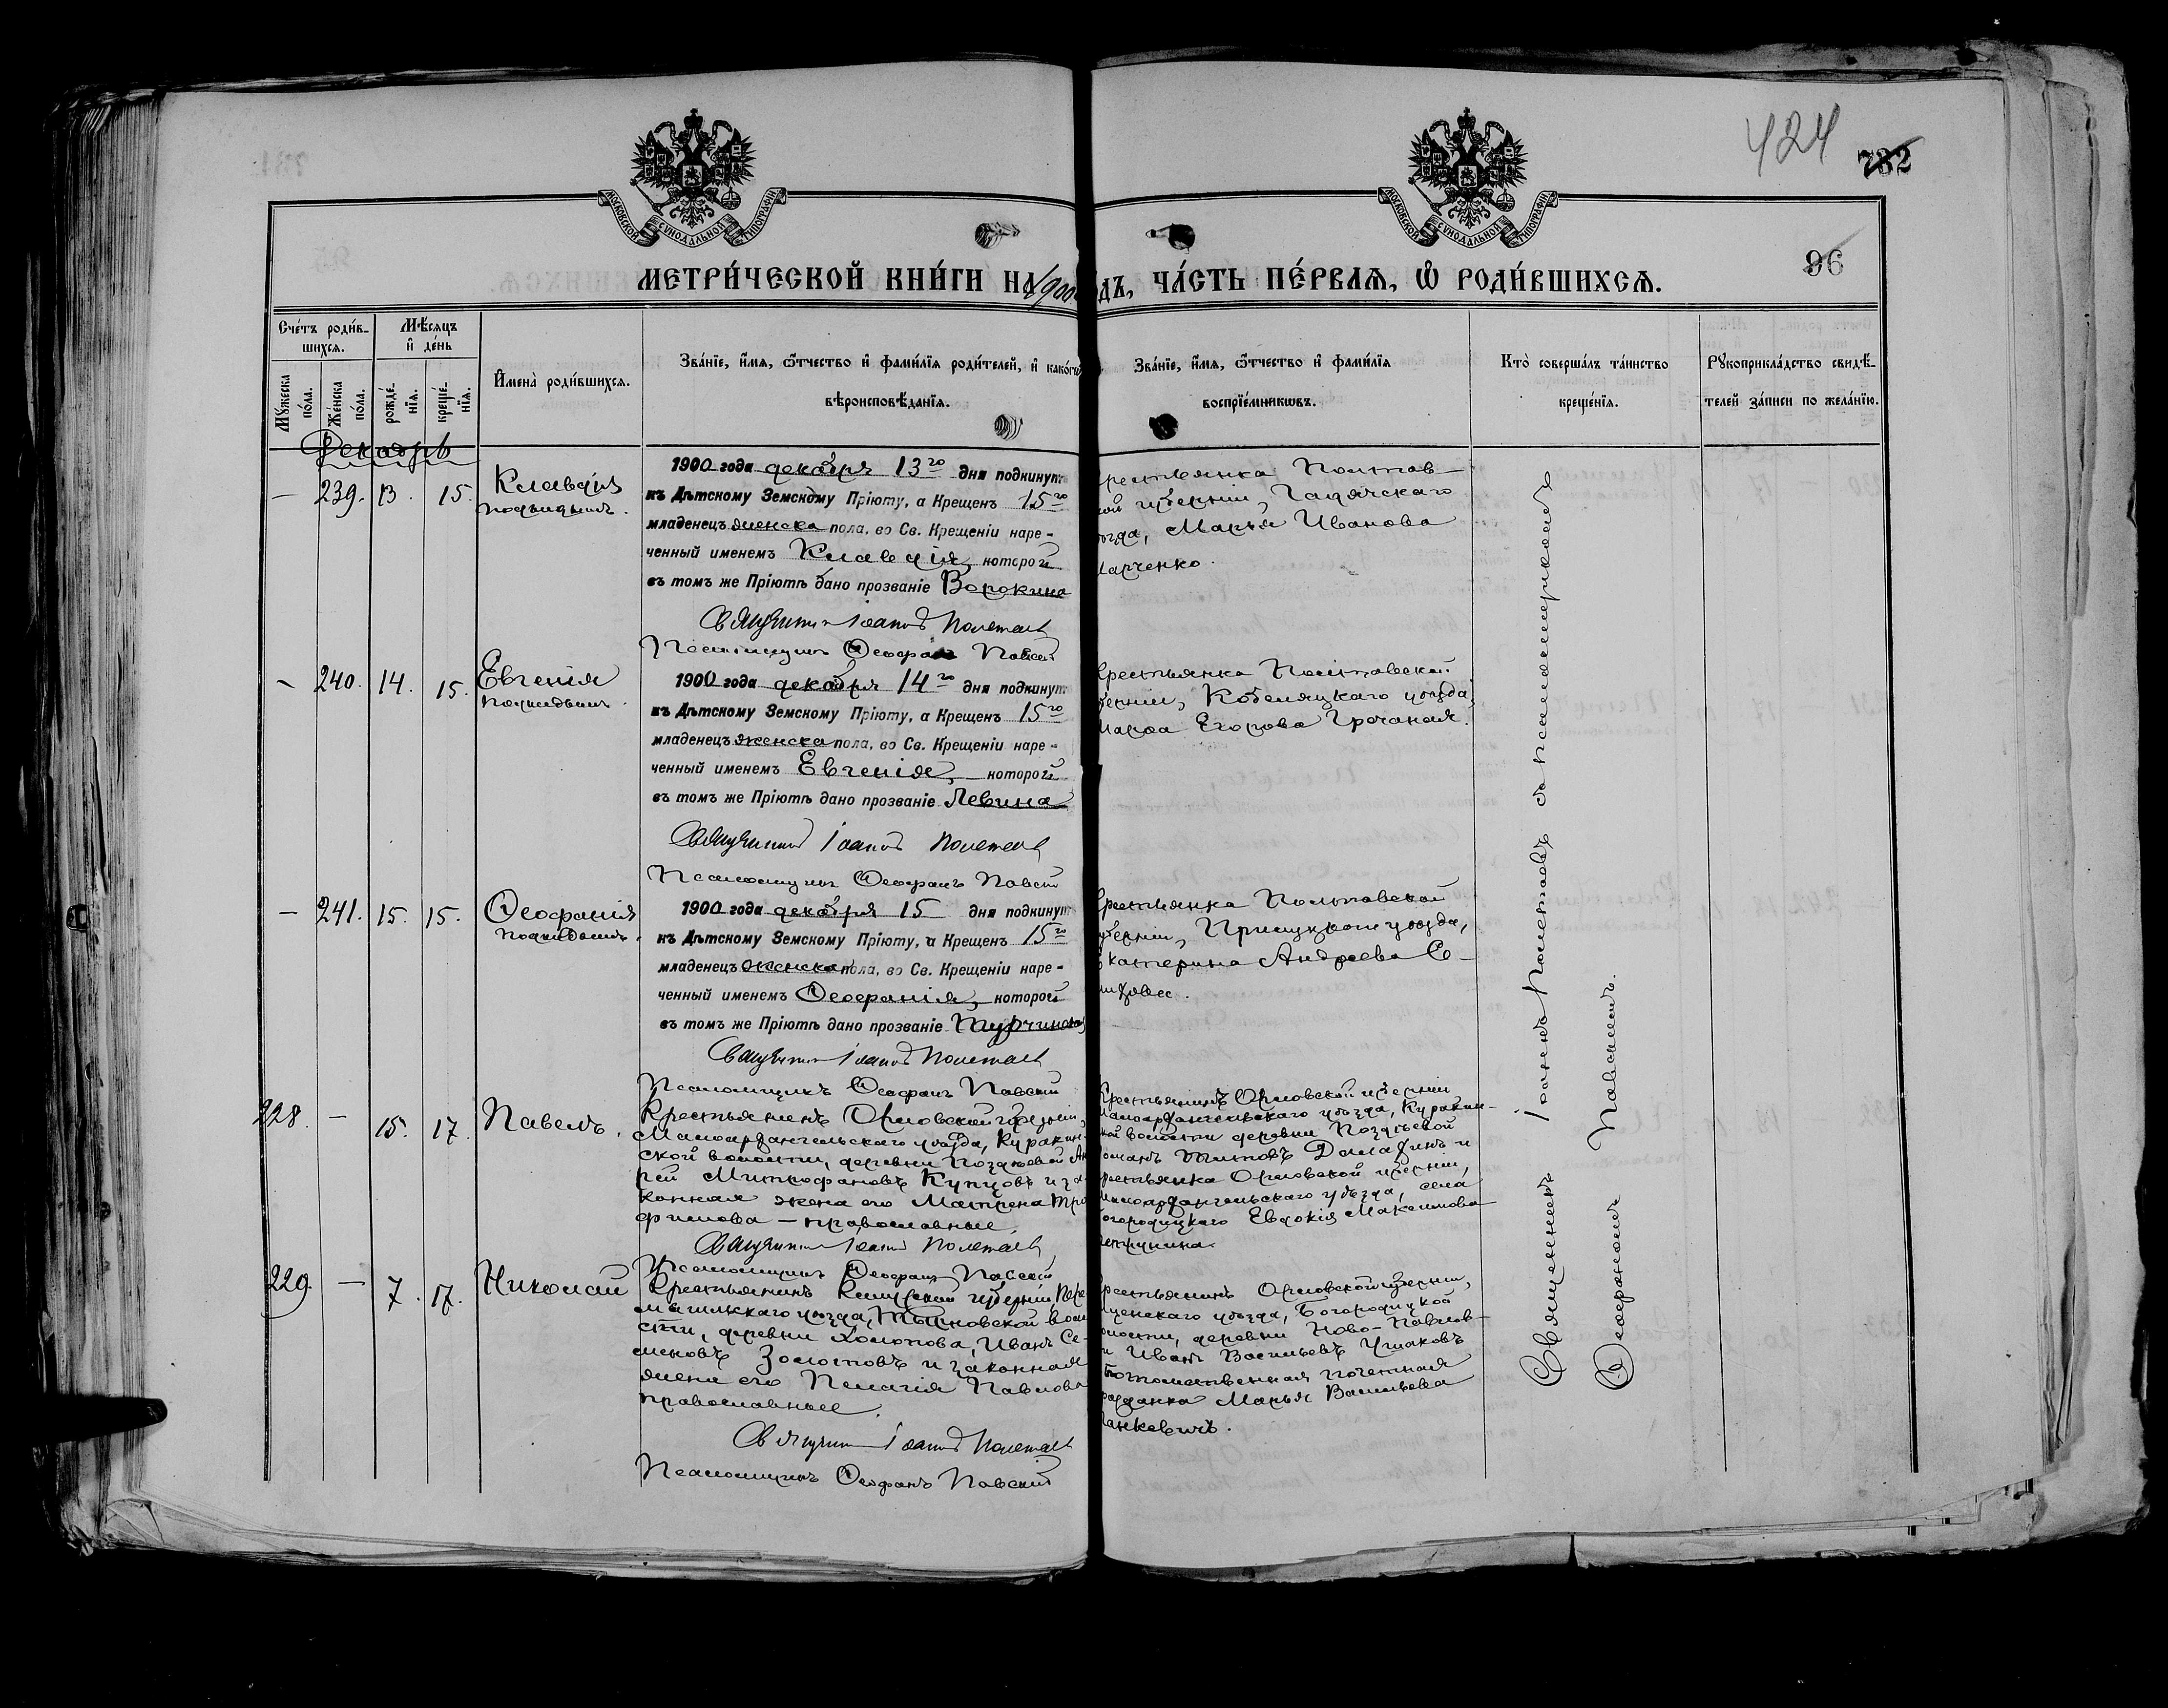 424
732
96
МОСКОВСКОЙ СУНОДАЛЬНОЙ ТИПОГРАФІИ
МОСКОВСКОЙ СУНОДАЛЬНОЙ ТИПОГРАФІИ
МЕТРИ́ЧЕСКОЙ КНИ́ГИ НА 1900 ДЪ, ЧА́СТЬ ПЕ́РВАѦ, Ѡ РОДИ́ВШИХСѦ.
Сче́тъ роди́в-
шихсѧ.
Мꙋ́жеска по́ла.
Же́нска по́ла.
Мѣ́сѧцъ
и҆ де́нь
рожде́-
нїѧ.
креще́-
нїѧ.
И҆мена̀ роди́вшихсѧ.
Зва́нїе, и҆́мѧ, ѻ҆́тчество и҆ фами́лїѧ роди́телей, и҆ како́гѡ
вѣроисповѣ́данїѧ.
Зва́нїе, и҆́мѧ, ѻ҆́тчество и҆ фами́лїѧ
воспрїе́мникѡвъ.
Кто̀ соверша́лъ та́инство
креще́нїѧ.
Рꙋкоприкла́дство свидѣ́-
телей за́писи по жела́нїю.
Декабрь
— 239. 13. 15. Клавдія
подкидышъ.
1900 года декабря 13го дня подкинут
къ Дѣтскому Земскому Пріюту, а Крещенъ 15го
младенецъ женска пола, во Св. Крещеніи наре-
ченный именемъ Клавдія, которой
въ томъ же Пріютѣ дано прозваніе Ворокина
Священникъ Іоаннъ Полетаевъ
Псаломщикъ Ѳеофанъ Павскій
рестьянка Полтав-
ской губерніи, Гадячскаго
ѣзда, Марья Иванова
Марченко.
— 240. 14. 15. Евгенія
подкидышъ.
1900 года декабря 14го дня подкинут
къ Дѣтскому Земскому Пріюту, а Крещенъ 15го
младенецъ женска пола, во Св. Крещеніи наре-
ченный именемъ Евгенія, которой
въ томъ же Пріютѣ дано прозваніе Левина
Священникъ Іоаннъ Полетаевъ
Псаломщикъ Ѳеофанъ Павскій
рестьянка Полтавской
берніи, Кобеляцкаго уѣзда
Марѳа Егорова Гречаная.
— 241. 15. 15. Ѳеофанія
подкидышъ.
1900 года декабря 15 дня подкинут
къ Дѣтскому Земскому Пріюту, а Крещенъ 15го
младенецъ женска пола, во Св. Крещеніи наре-
ченный именемъ Ѳеофанія, которой
въ томъ же Пріютѣ дано прозваніе
Священникъ Іоаннъ Полетаевъ
Псаломщикъ Ѳеофанъ Павскій
рестьянка Полтавской
губерніи, Прилуцкаго уѣзда,
Екатерина Андреева
228. — 15. 17. Павелъ.
Крестьянинъ Орловской губерніи,
Малоархангельскаго уѣзда, Куракин-
ской волости, деревни Поздѣевой Ан
рей Митрофановъ Купцовъ и за-
конная жена его Матрена Тро
фимова — православные.
Священникъ Іоаннъ Полетаевъ
Псаломщикъ Ѳеофанъ Павскій
Крестьянинъ Орловской губерніи
Малоархангельскаго уѣзда, Куракин-
ской волости деревни Поздѣевой
Романъ Титовъ и
рестьянка Орловской губерніи,
Малоархангельскаго уѣзда, села
огородицкаго Евдокія Максимова
229. — 7. 17. Николай
Крестьянинъ Калужской губерніи, Пере-
мышльскаго уѣзда, воло
сти, деревни Холопова, Иванъ Се-
меновъ Золотовъ и законная
жена его Пелагія Павлова
православные.
Священникъ Іоаннъ Полетаевъ
Псаломщикъ Ѳеофанъ Павскій
рестьянинъ Орловской губерніи,
Мценскаго уѣзда, Богородицкой
олости, деревни Ново-Павлов-
Иванъ Васильевъ Ушаковъ
Потомственная почетная
ражданка Марья Васильева
анкевичъ.
Священникъ Іоаннъ Полетаевъ съ псаломщикомъ
Ѳеофаномъ Павскимъ.